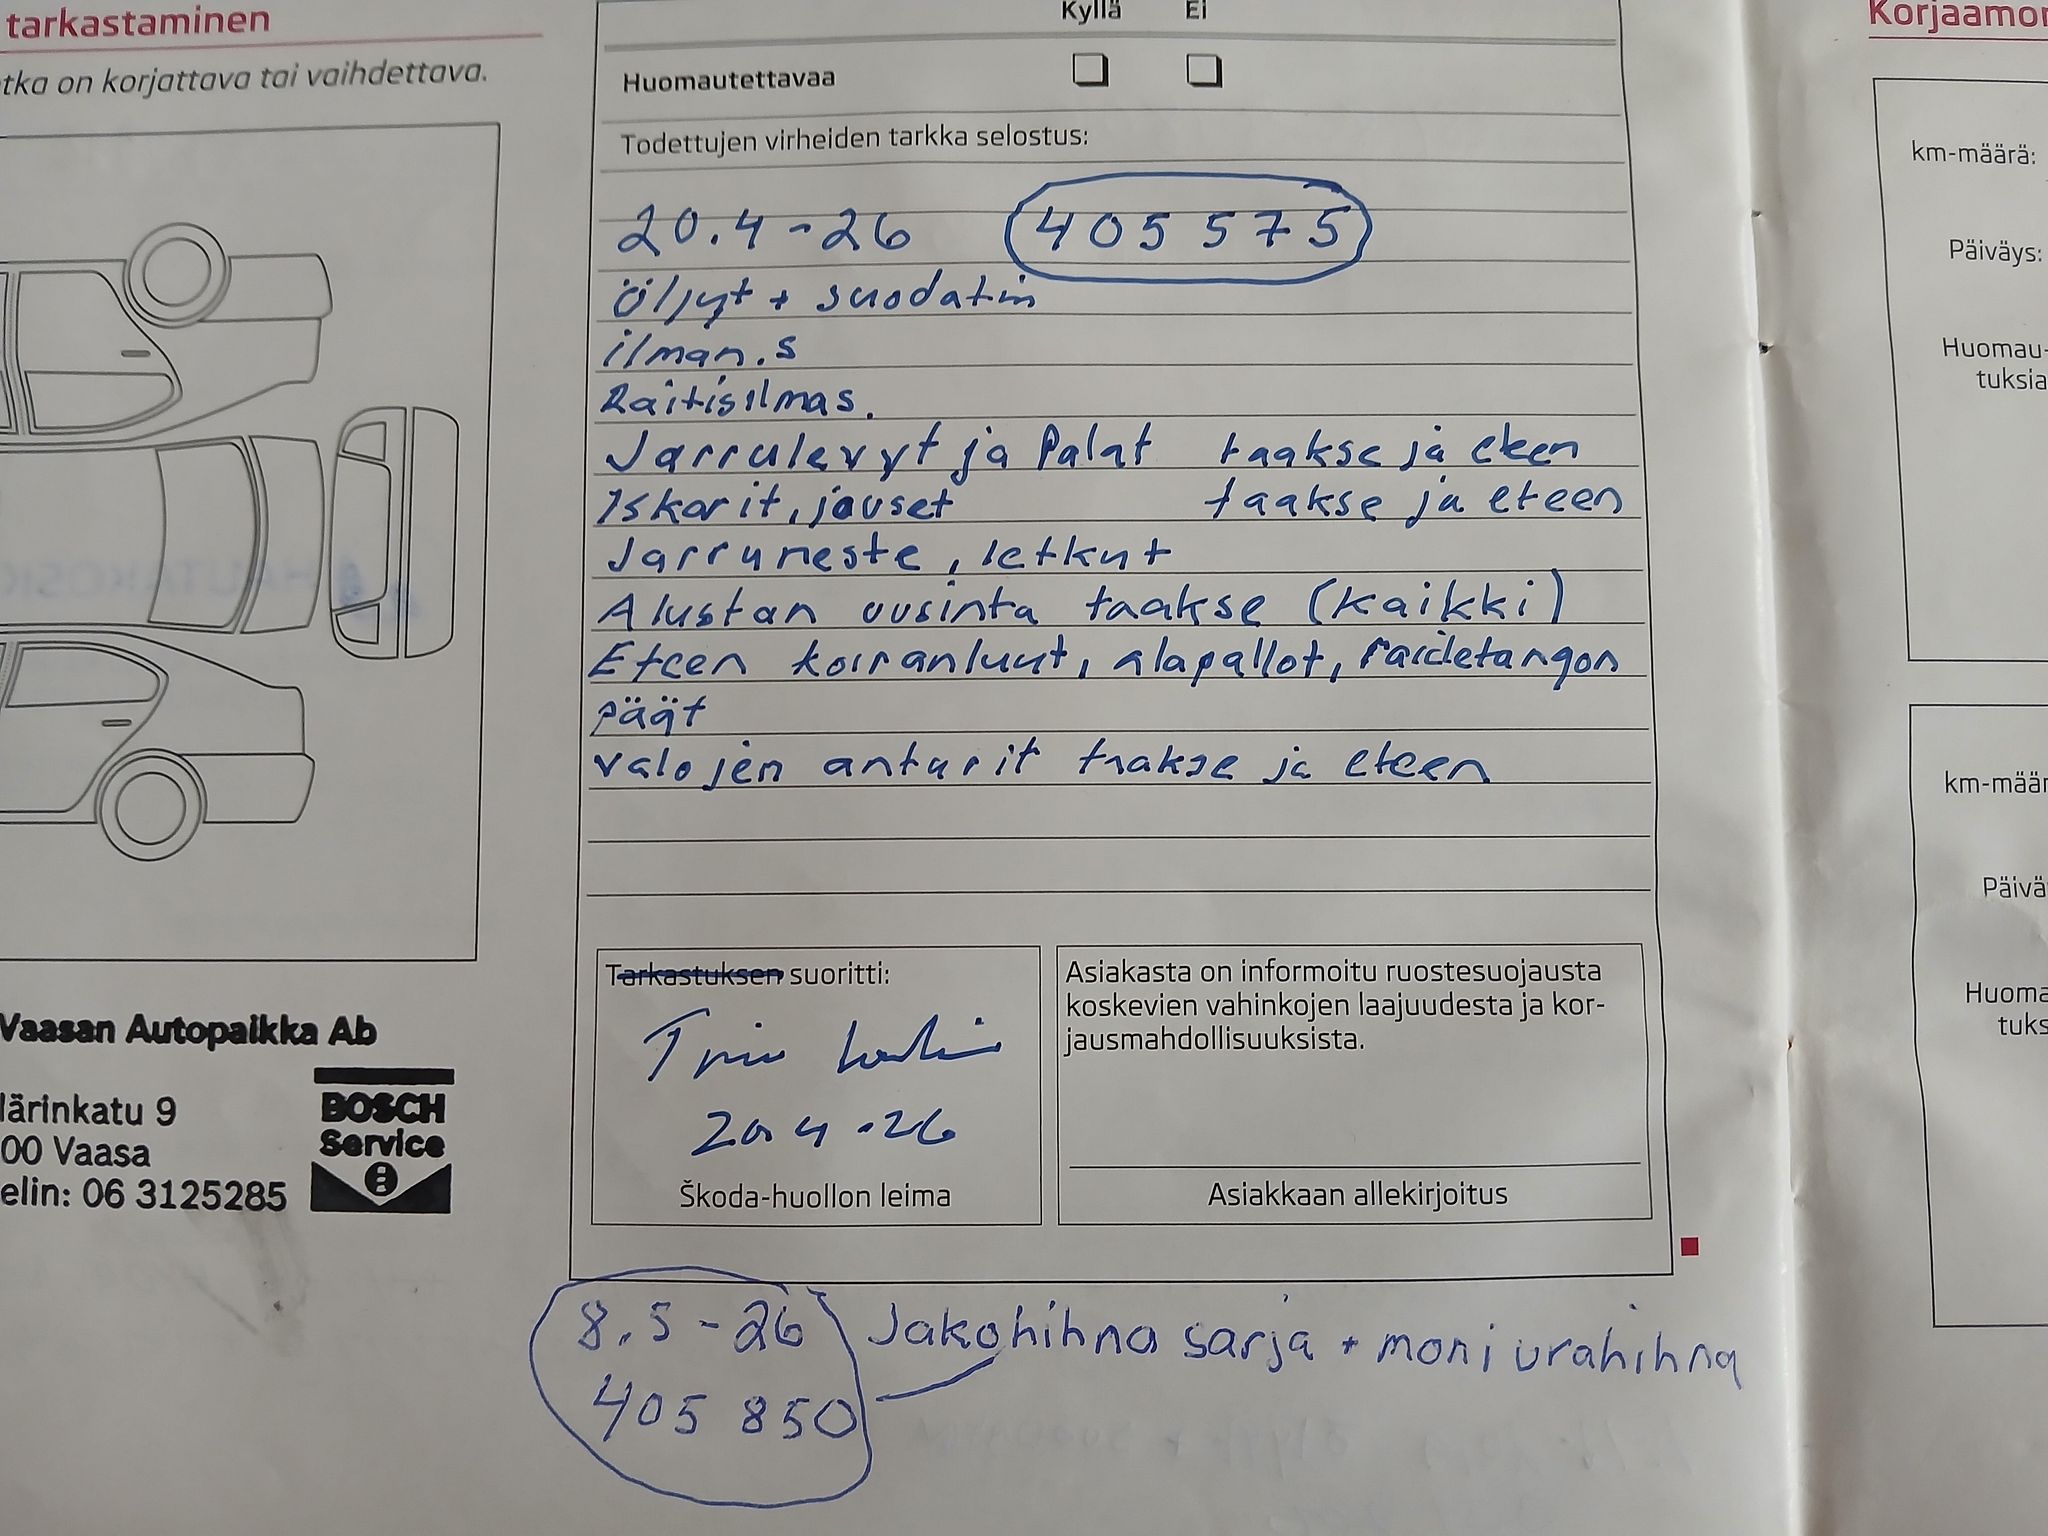 tarkastaminen
tka on korjattava tai vaihdettava.
Vaasan Autopaikka Ab
lärinkatu 9
00 Vaasa
elin: 06 3125285
BOSCH
Service
Kyllä Ei
Huomautettavaa
Todettujen virheiden tarkka selostus:
20.4-26 405 575
Öljyt + suodatin
ilman.s
Raitisilmas.
Jarrulevyt ja Palat taakse ja eteen
Iskarit, jouset taakse ja eteen
Jarruneste, letkut
Alustan uusinta taakse (kaikki)
Eteen koiranluut, alapallot, raidetangon
päät
valojen anturit taakse ja eteen
Tarkastuksen suoritti:
20.4-26
Škoda-huollon leima
Asiakasta on informoitu ruostesuojausta
koskevien vahinkojen laajuudesta ja kor-
jausmahdollisuuksista.
Asiakkaan allekirjoitus
8.5-26 Jakohihna sarja + moniurahihna
405 850
Korjaamon
km-määrä:
Päiväys:
Huomau-
tuksia
km-määr
Päivä
Huoma
tuks